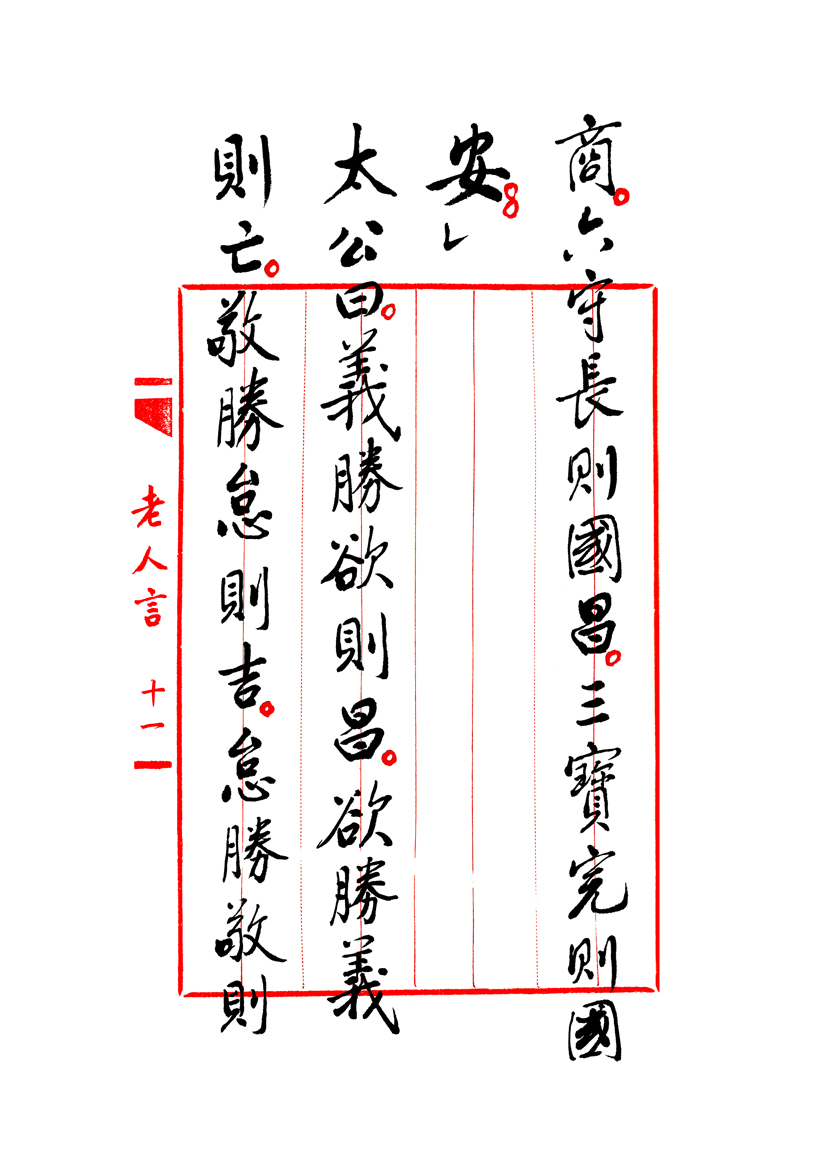 商。六守長則國昌。三寶完則國
安。
太公曰。義勝欲則昌。欲勝義
則亡。敬勝怠則吉。怠勝敬則
老人言 十一